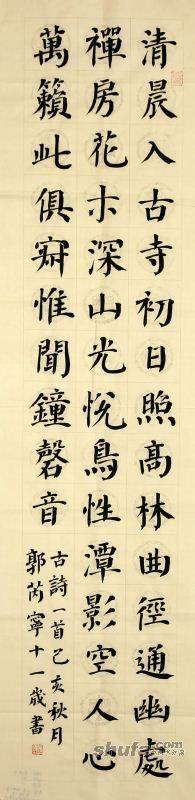 清晨入古寺初日照髙林曲徑通幽處
禪房花木深山光悅鳥性潭影空人心
萬籟此俱寂惟聞鐘磬音
古詩一首己亥秋月
郭芮寧十一歲書